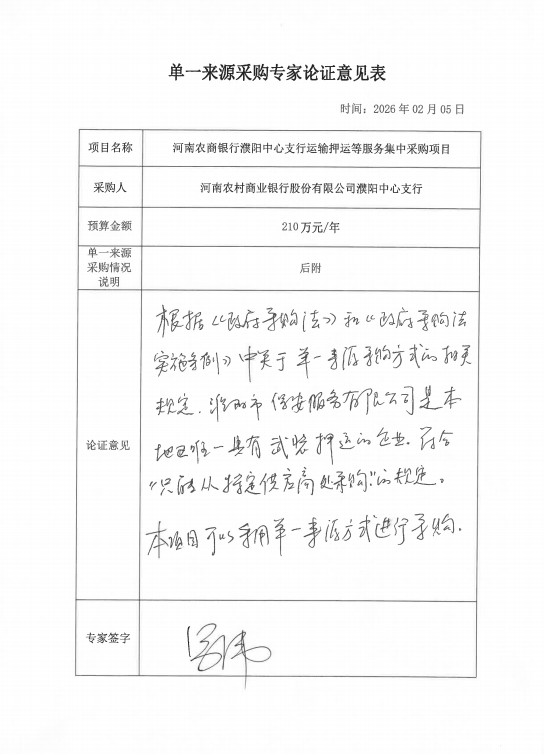 单一来源采购专家论证意见表
时间：2026 年 02 月 05 日
项目名称
河南农商银行濮阳中心支行运输押运等服务集中采购项目
采购人
河南农村商业银行股份有限公司濮阳中心支行
预算金额
210 万元/年
单一来源
采购情况
说明
后附
论证意见
根据《政府采购法》和《政府采购法
实施条例》中关于单一来源采购方式的相关
规定，濮阳市保安服务有限公司是本
地区唯一具有武装押运的企业。符合
“只能从特定供应商处采购”的规定。
本项目可以采用单一来源方式进行采购.
专家签字